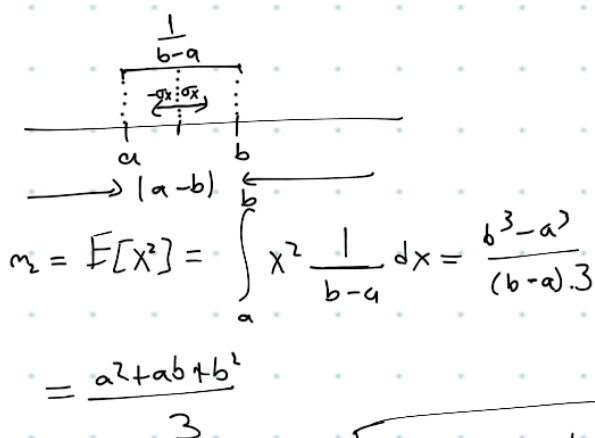 1/(b-a)
-σx σx
a b
(a-b)
m₂ = E[X²] = ∫ₐᵇ x² 1/(b-a) dx = (b³-a³)/((b-a).3)
= (a²+ab+b²)/3